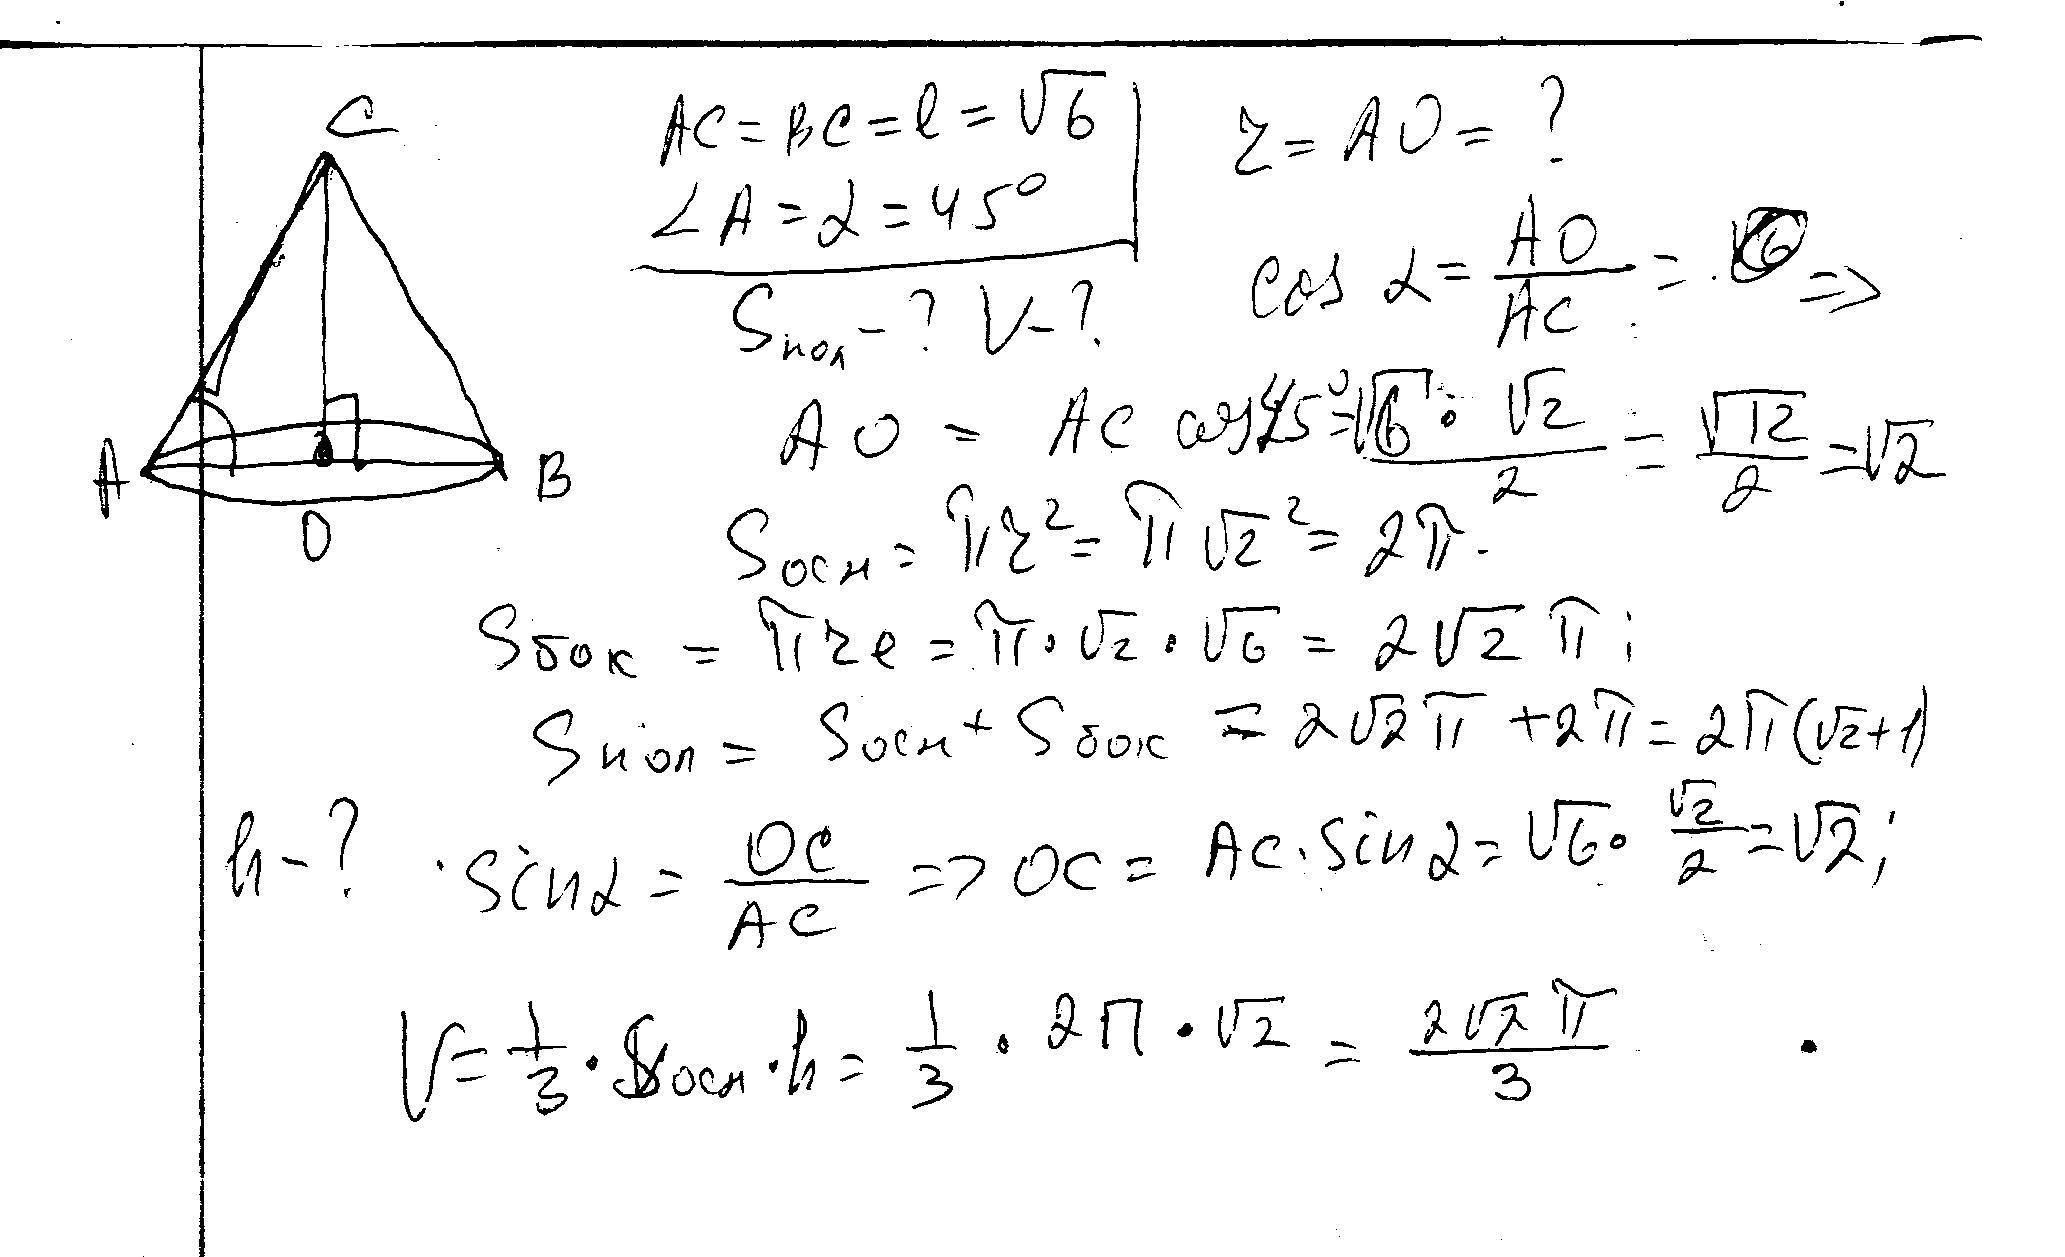 C
AC = BC = l = √6
∠A = α = 45°
Sпол - ? V - ?
r = AO = ?
cos α = AO/AC = √6 =>
AO = AC cos45° = √6 · √2/2 = √12/2 = √2
A B
O
Sосн = πr² = π √2² = 2π.
Sбок = πrl = π · √2 · √6 = 2√2 π;
Sпол = Sосн + Sбок = 2√2 π + 2π = 2π(√2+1)
h - ? · sin α = OC/AC => OC = AC · sin α = √6 · √2/2 = √2;
V = 1/3 · Sосн · h = 1/3 · 2П · √2 = 2√2 π/3 .